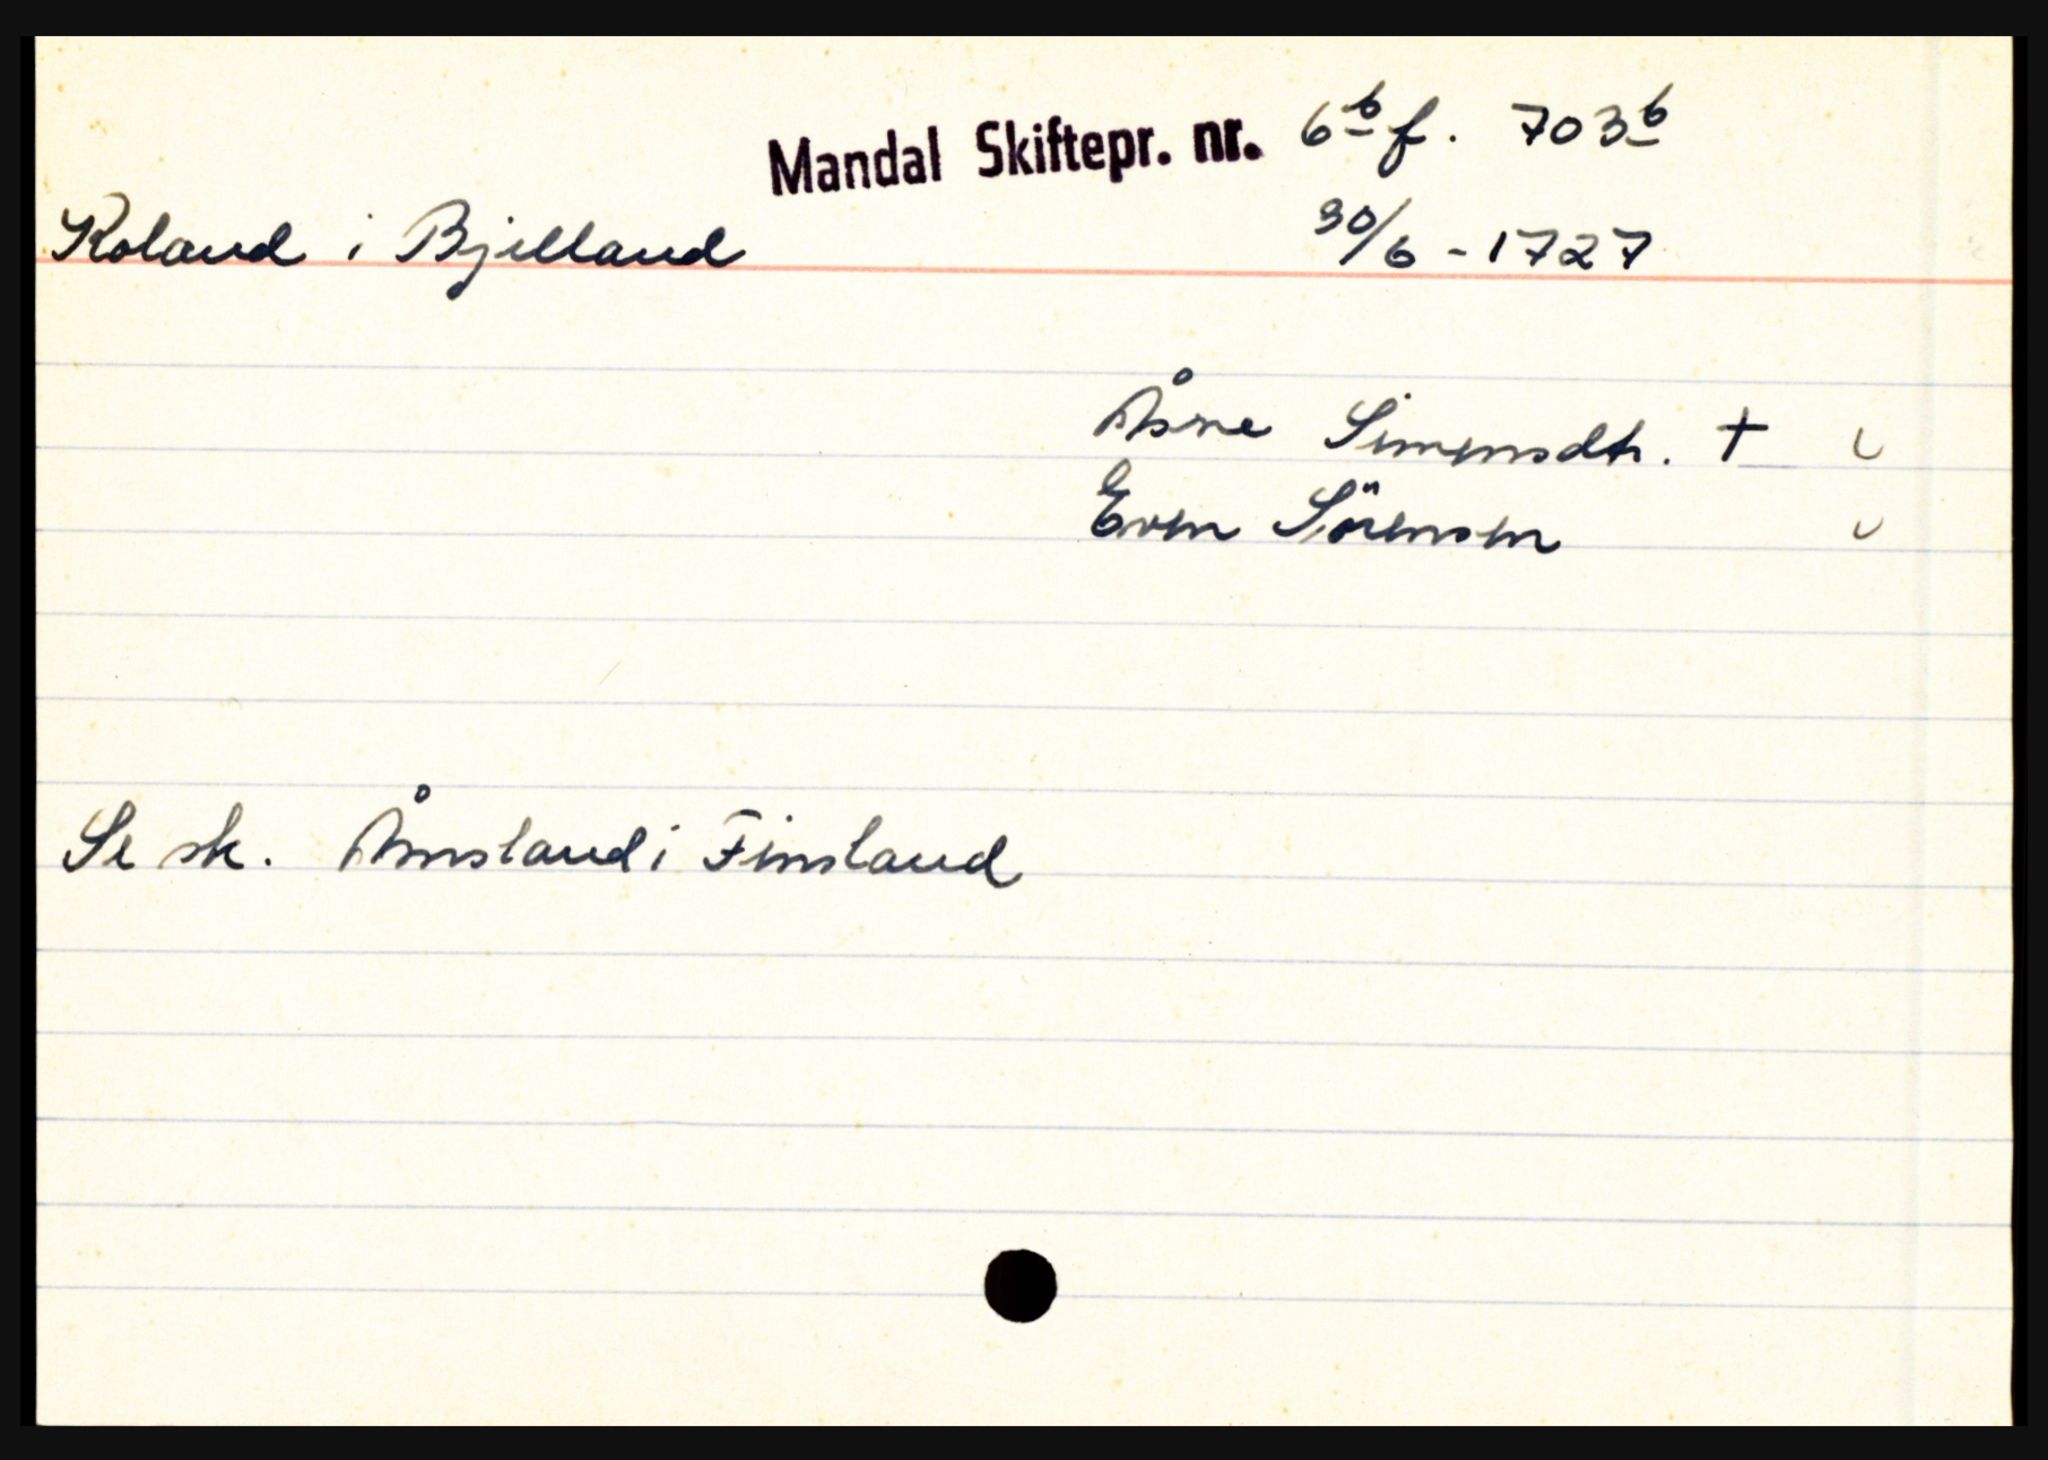 Mandal Skiftepr. nr. 6b f. 703b
Roland i Bjelland 30/6 - 1727
Åsne Simensdtr. +
Even Sörensen
Se sk. Åmsland i Finsland